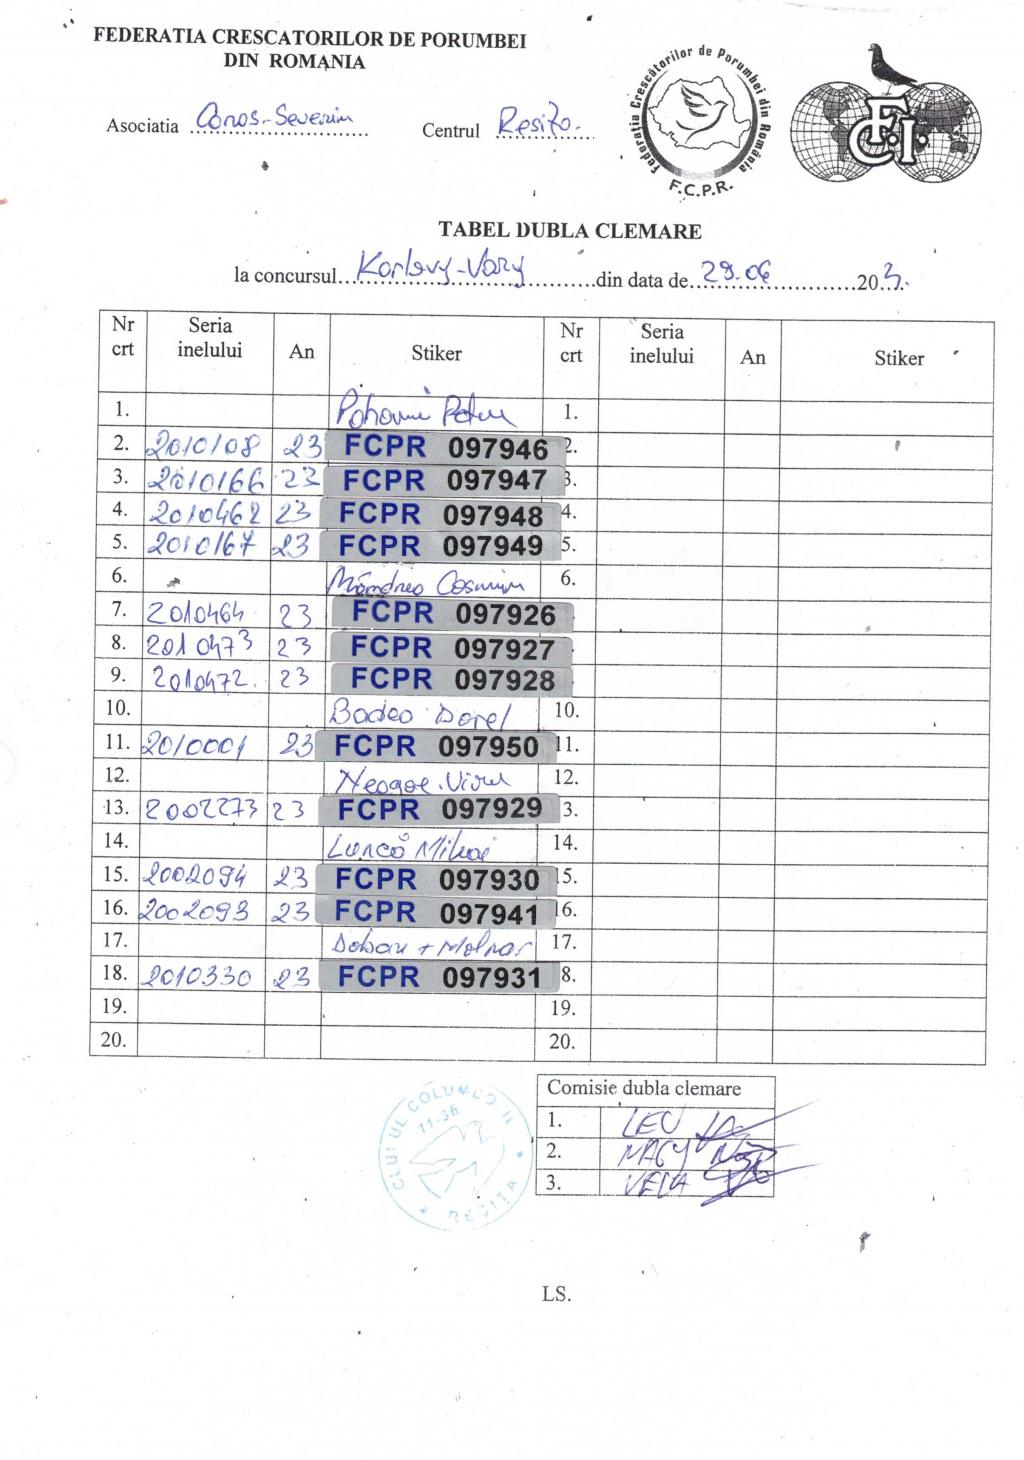 FEDERATIA CRESCATORILOR DE PORUMBEI
DIN ROMANIA
Asociatia Caras-Severin Centrul Resita
Federația Crescătorilor de Porumbei din România
F.C.P.R.
F.C.I.
TABEL DUBLA CLEMARE
la concursul Karlovy-Vary din data de 29.06 20
Nr crt Seria inelului An Stiker Nr crt Seria inelului An Stiker
1. Petru 1.
2. 2010108 23 FCPR 097946 2.
3. 2010166 23 FCPR 097947 3.
4. 2010462 23 FCPR 097948 4.
5. 2010167 23 FCPR 097949 5.
6. Mândreo Cosmin 6.
7. 2010464 23 FCPR 097926
8. 2010473 23 FCPR 097927
9. 2010472. 23 FCPR 097928
10. Badeo Dorel 10.
11. 2010001 23 FCPR 097950 11.
12. Neagoe Viorel 12.
13. 2002273 23 FCPR 097929 3.
14. Luncă Mihai 14.
15. 2002094 23 FCPR 097930 15.
16. 2002093 23 FCPR 097941 16.
17. Doban + Molnar 17.
18. 2010330 23 FCPR 097931 8.
19. 19.
20. 20.
CLUBUL COLUMBOFIL
11-36
REȘIȚA
Comisie dubla clemare
1. LEU
2. NAGY
3. VELA
LS.